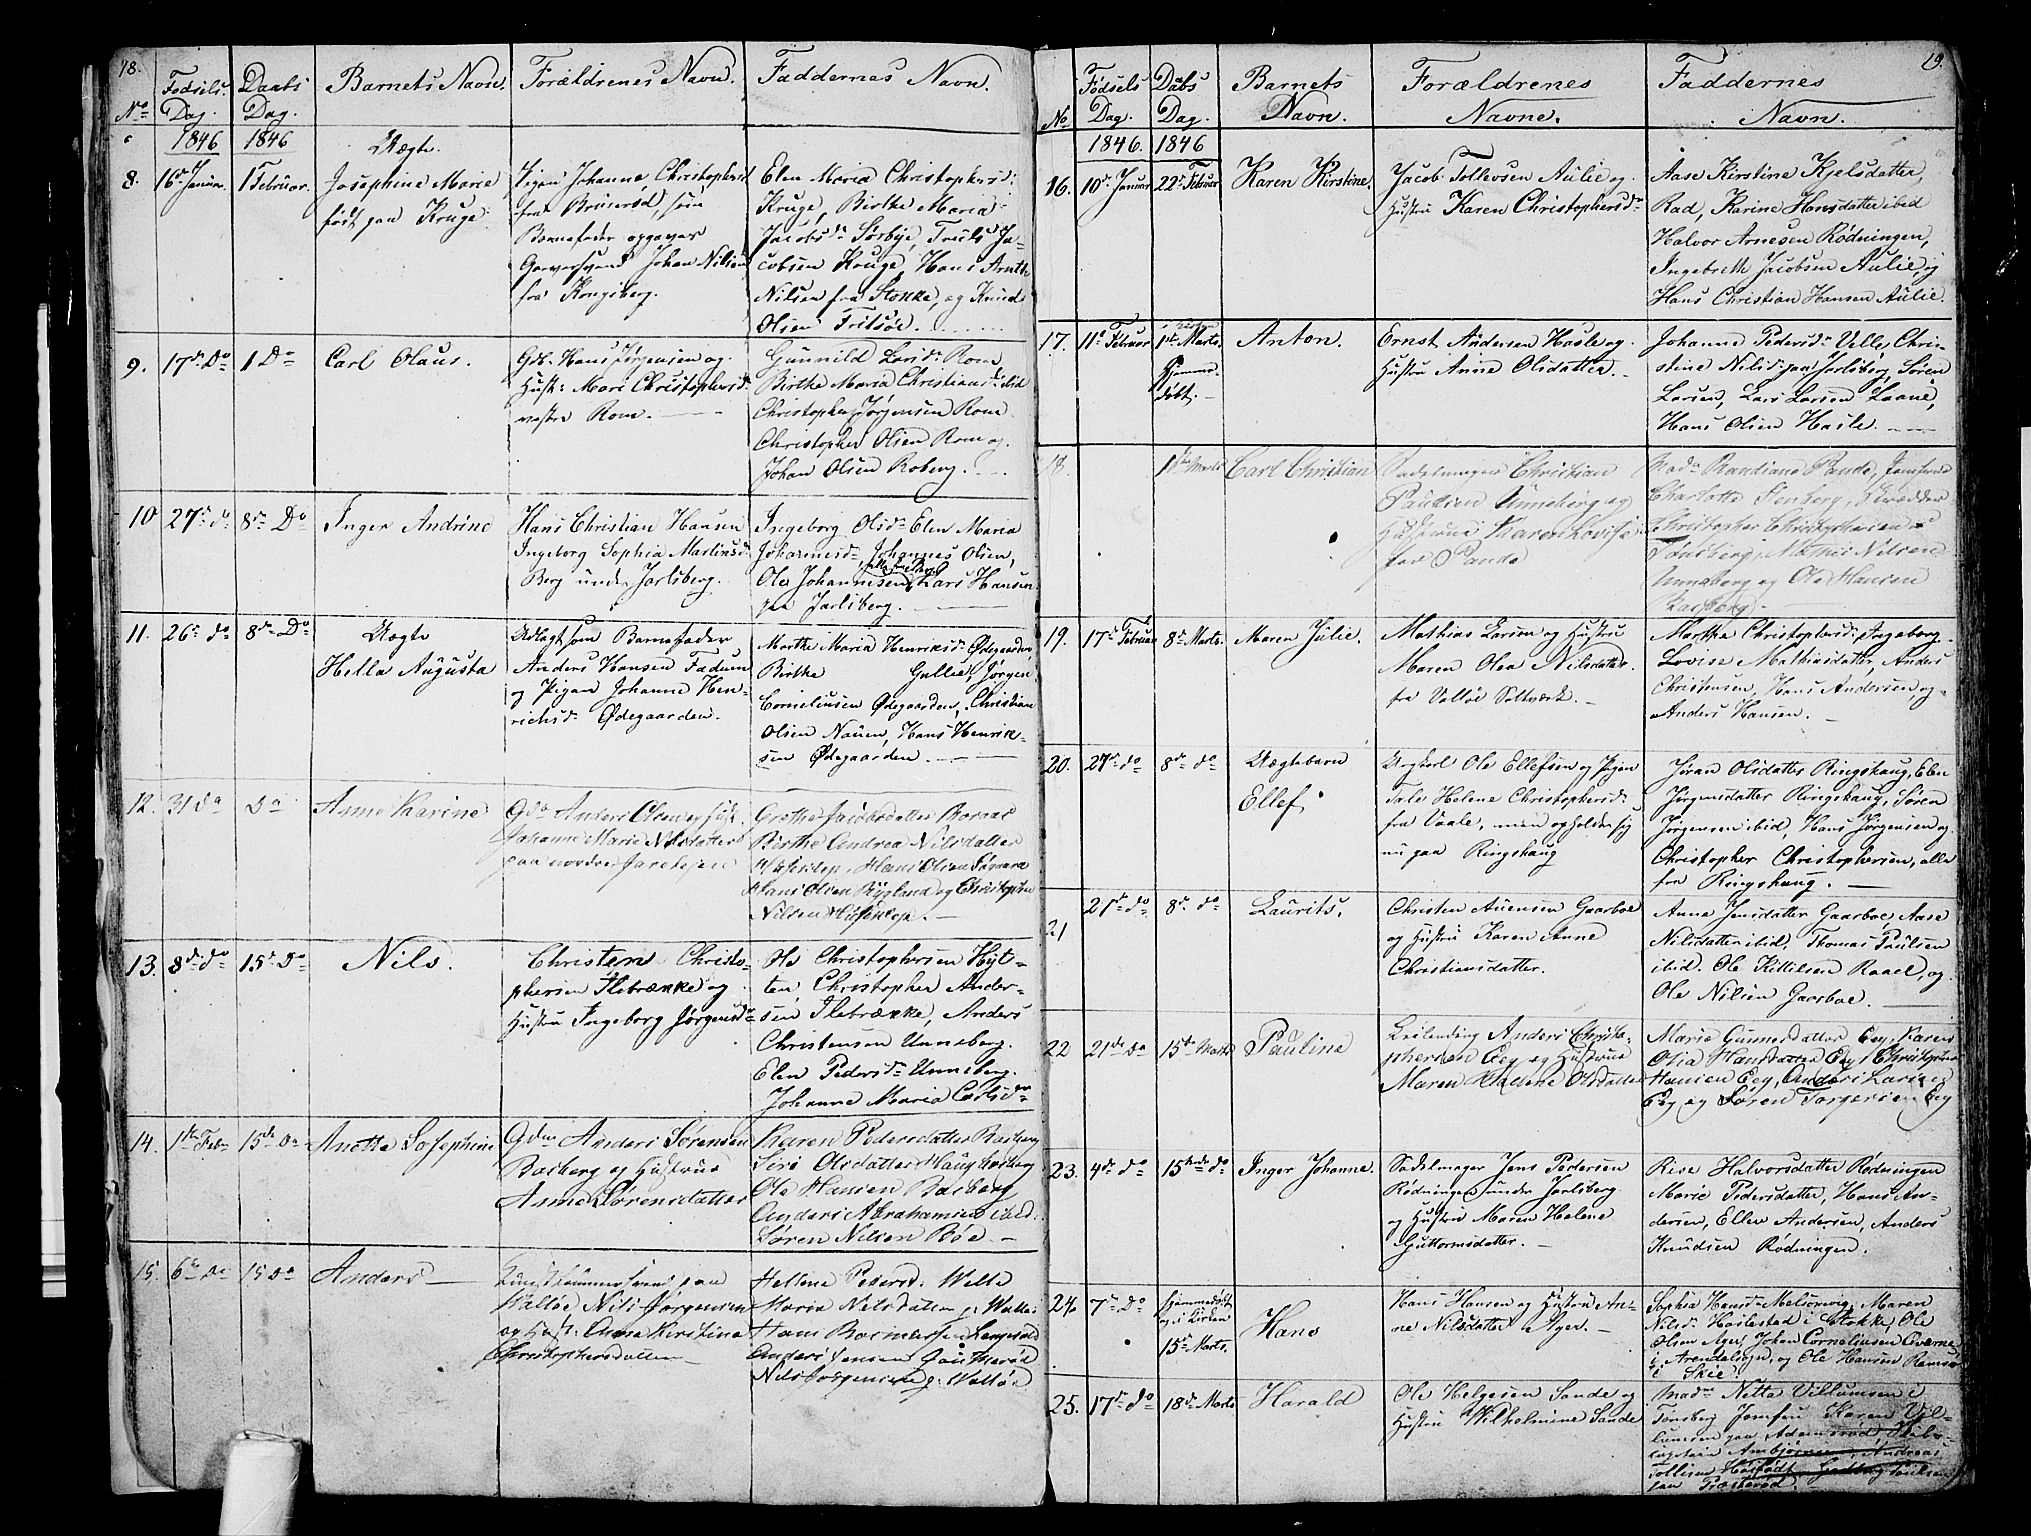 18.
No
Fødsels Dag.
Daabs Dag.
Barnets Navn.
Forældrenes Navn.
Faddernes Navn.
1846
1846
Uægte
8.
16de Januar.
1 Februar.
Josephine Marie
født paa Kruge.
Pigen Johanne Christophersd
fra Brunerød, som
Barnefader opgaves
Garversvend Johan Nilsen
fra Kongsberg.
Elen Maria Christophersd:
Kruge, Birthe Maria
Jacobsd. Sørbye, Truls Ja-
cobsen Kruge, Hans Arnth
Nilsen fra Stokke, og Knud
Olsen Tritsøe.
9.
17de Do
1 Do
Carl Olaus.
Gdb. Hans Jørgensen og
Hust: Mari Christophersd.
vestre Rom.
Gunnild Larsd. Rom
Birthe Maria Christiansd. ibid
Christopher Jørgensen Rom
Christopher Olsen Rom og
Johan Olsen Roberg.
10
27de do
8de Do
Inger Andrine
Hans Christian Hansen
Ingeborg Sophia Martinsd.
Berg under Jarlsberg.
Ingeborg Olsd. Elen Maria
Johannesd., Johannes Olsen,
Ole Johannesen, Lars Hansen
paa Jarlsberg.
11.
26de do
8de Do
Uægte
Hella Augusta
Udlagt som Barnefader
Anders Hansen Fadum
og Pigen Johanne Hen-
richsd. Ødegaarden.
Marthe Maria Henriksd. Ødegaarden,
Birthe Gullie, Jørgen
Corneliusen Ødegaarden, Christian
Olsen Nauen, Hans Henrik-
sen Ødegaarden.
12.
31 do
Do
Anne Karine
Gdm Anders Olsen og Hust.
Johanne Marie Nilsdatter
paa nordre Jareteien
Grethe Jacobsdatter
Birthe Andrea Nilsdatter
Hans Olsen
Hans Olsen Rysland og Christopher
Nilsen
13.
8de do
15de Do
Nils.
Christen Christo-
phersen Ilebrække og
Hustru Ingeborg Jørgensdr
Ole Christophersen Hyt-
ten, Christopher Ander-
sen Ilebrække, Anders
Christensen Unneberg.
Elen Pedersdr Unneberg.
Johanne Maria Carlsdr
14.
1ste Feb
15de Do
Anette Josephine
Gdm Anders Sørensen
Basberg og Hustrue
Anne Sørensdatter
Karen Pedersdatter Basberg
Siri Olsdatter Haugbasberg
Ole Hansen Basberg
Anders Abrahamsen ibid.
Søren Nilsen Bøe.
15.
6te Do
15 Do
Anders
paa
Walløe Nils Jørgensen
og Hust: Anne Kirstine
Christophersdatter
Hellene Pedersd. Walle
Maria Nilsdatter
Hans
Anders Jensen
Nils Jørgensen Walløe
19.
No
Fødsels Dag.
Dabs Dag.
Barnets Navn.
Forældrenes Navne.
Faddernes Navn.
1846.
1846
16.
10de Januar
22de Februar
Karen Kirstine.
Jacob Tollevsen Aulie og
Hustru Karen Christophersdr
Aase Kirstine Kjelsdatter,
Rad, Karine Hansdatter ibid
Halvor Arnesen Rødningen,
Ingebreth Jacobsen Aulie, og
Hans Christian Hansen Aulie.
17.
11te Februar
1ste Marts.
Hjemme-
døbt.
Anton.
Ernst Andersen Hasle og
Hustru Anne Olsdatter.
Johanne Pedersd. Velle, Chri-
stine Nilsd. paa Jarlsberg, Søren
Larsen, Lars Larsen Laane,
Hans Olsen Hasle.
18.
1ste Marts
Carl Christian
Sadelmager Christian
Paulsen Unneberg og
Hustrue Karen Lovise
fra Sande
Mad. Randiane Sande, Jomfrue
Charlotte Stenberg,
Christopher Christophersen
Tønsberg, Mathis Nilsen
Unneberg og Ole Hansen
Basberg.
19.
17de Februar
8de Marts.
Maren Julie.
Mathias Larsen og Hustru
Maren Olea Nilsdatter.
fra Valløe Saltværk.
Marthe Christophersd., Ingeborg
Lovise Mathiasdatter, Anders
Christensen, Hans Andersen og
Anders Hansen.
20.
27de do
8de do
Uægtebarn
Ellef.
Ungkarl Ole Ellefsen og Pigen
Tale Helene Christophersd.
fra Vaale, men opholder sig
nu paa Ringshaug
Jøran Olsdatter Ringshaug, Elen
Jørgensdatter Ringshaug, Søren
Jørgensen ibid, Hans Jørgensen og
Christopher Christophersen, alle
fra Ringshaug.
21
21de do
8de do
Laurits.
Christen Auensen Gaarboe
og Hustru Karen Anne
Christiansdatter.
Anne Jensdatter Gaarboe, Aase
Nilsdatter ibid, Thomas Paulsen
ibid. Ole Kittilsen Raael, og
Ole Nilsen Gaarboe.
22
21de do
15de Marts
Pauline
Leilending Anders Christo-
phersen Eeg og Hustrue
Maren Hellene Olsdatter
Marie Gunnersdatter Eeg, Karen
Olia Hansdatter Eeg, Christopher
Hansen Eeg, Anders Larsen
Eeg og Søren Torgersen Eeg
23.
4de do
15tende do
Inger Johanne.
Sadelmager Jens Pedersen
Rødningen under Jarlsberg.
og Hustru Maren Helene
Guttormsdatter.
Rise Halvorsdatter Rødningen
Marie Pedersdatter, Hans An-
dersen, Ellen Andersen, Anders
Knudsen Rødningen.
24.
7de Do
hjemmedøbt
og i Kirken
15de Marts.
Hans
Hans Hansen og Hustru An-
ne Nilsdatter Ager.
Sophia Hansd. Melsomvig, Maren
Nilsd. Haslestad i Stokke, Ole
Olsen Ager, Johan Corneliusen Qværne
i Arendalsogn, og Ole Hansen
i Skie.
25.
17de do
18de Marts
Harald
Ole Helgesen Sande og
Hustru Wilhelmine Sande
Mad. Netta Villumsen i
Tønsberg Jomfru Karen Vil-
lumsen paa Adamsrød,
Andreas
Tollisen
paa Træsterød.